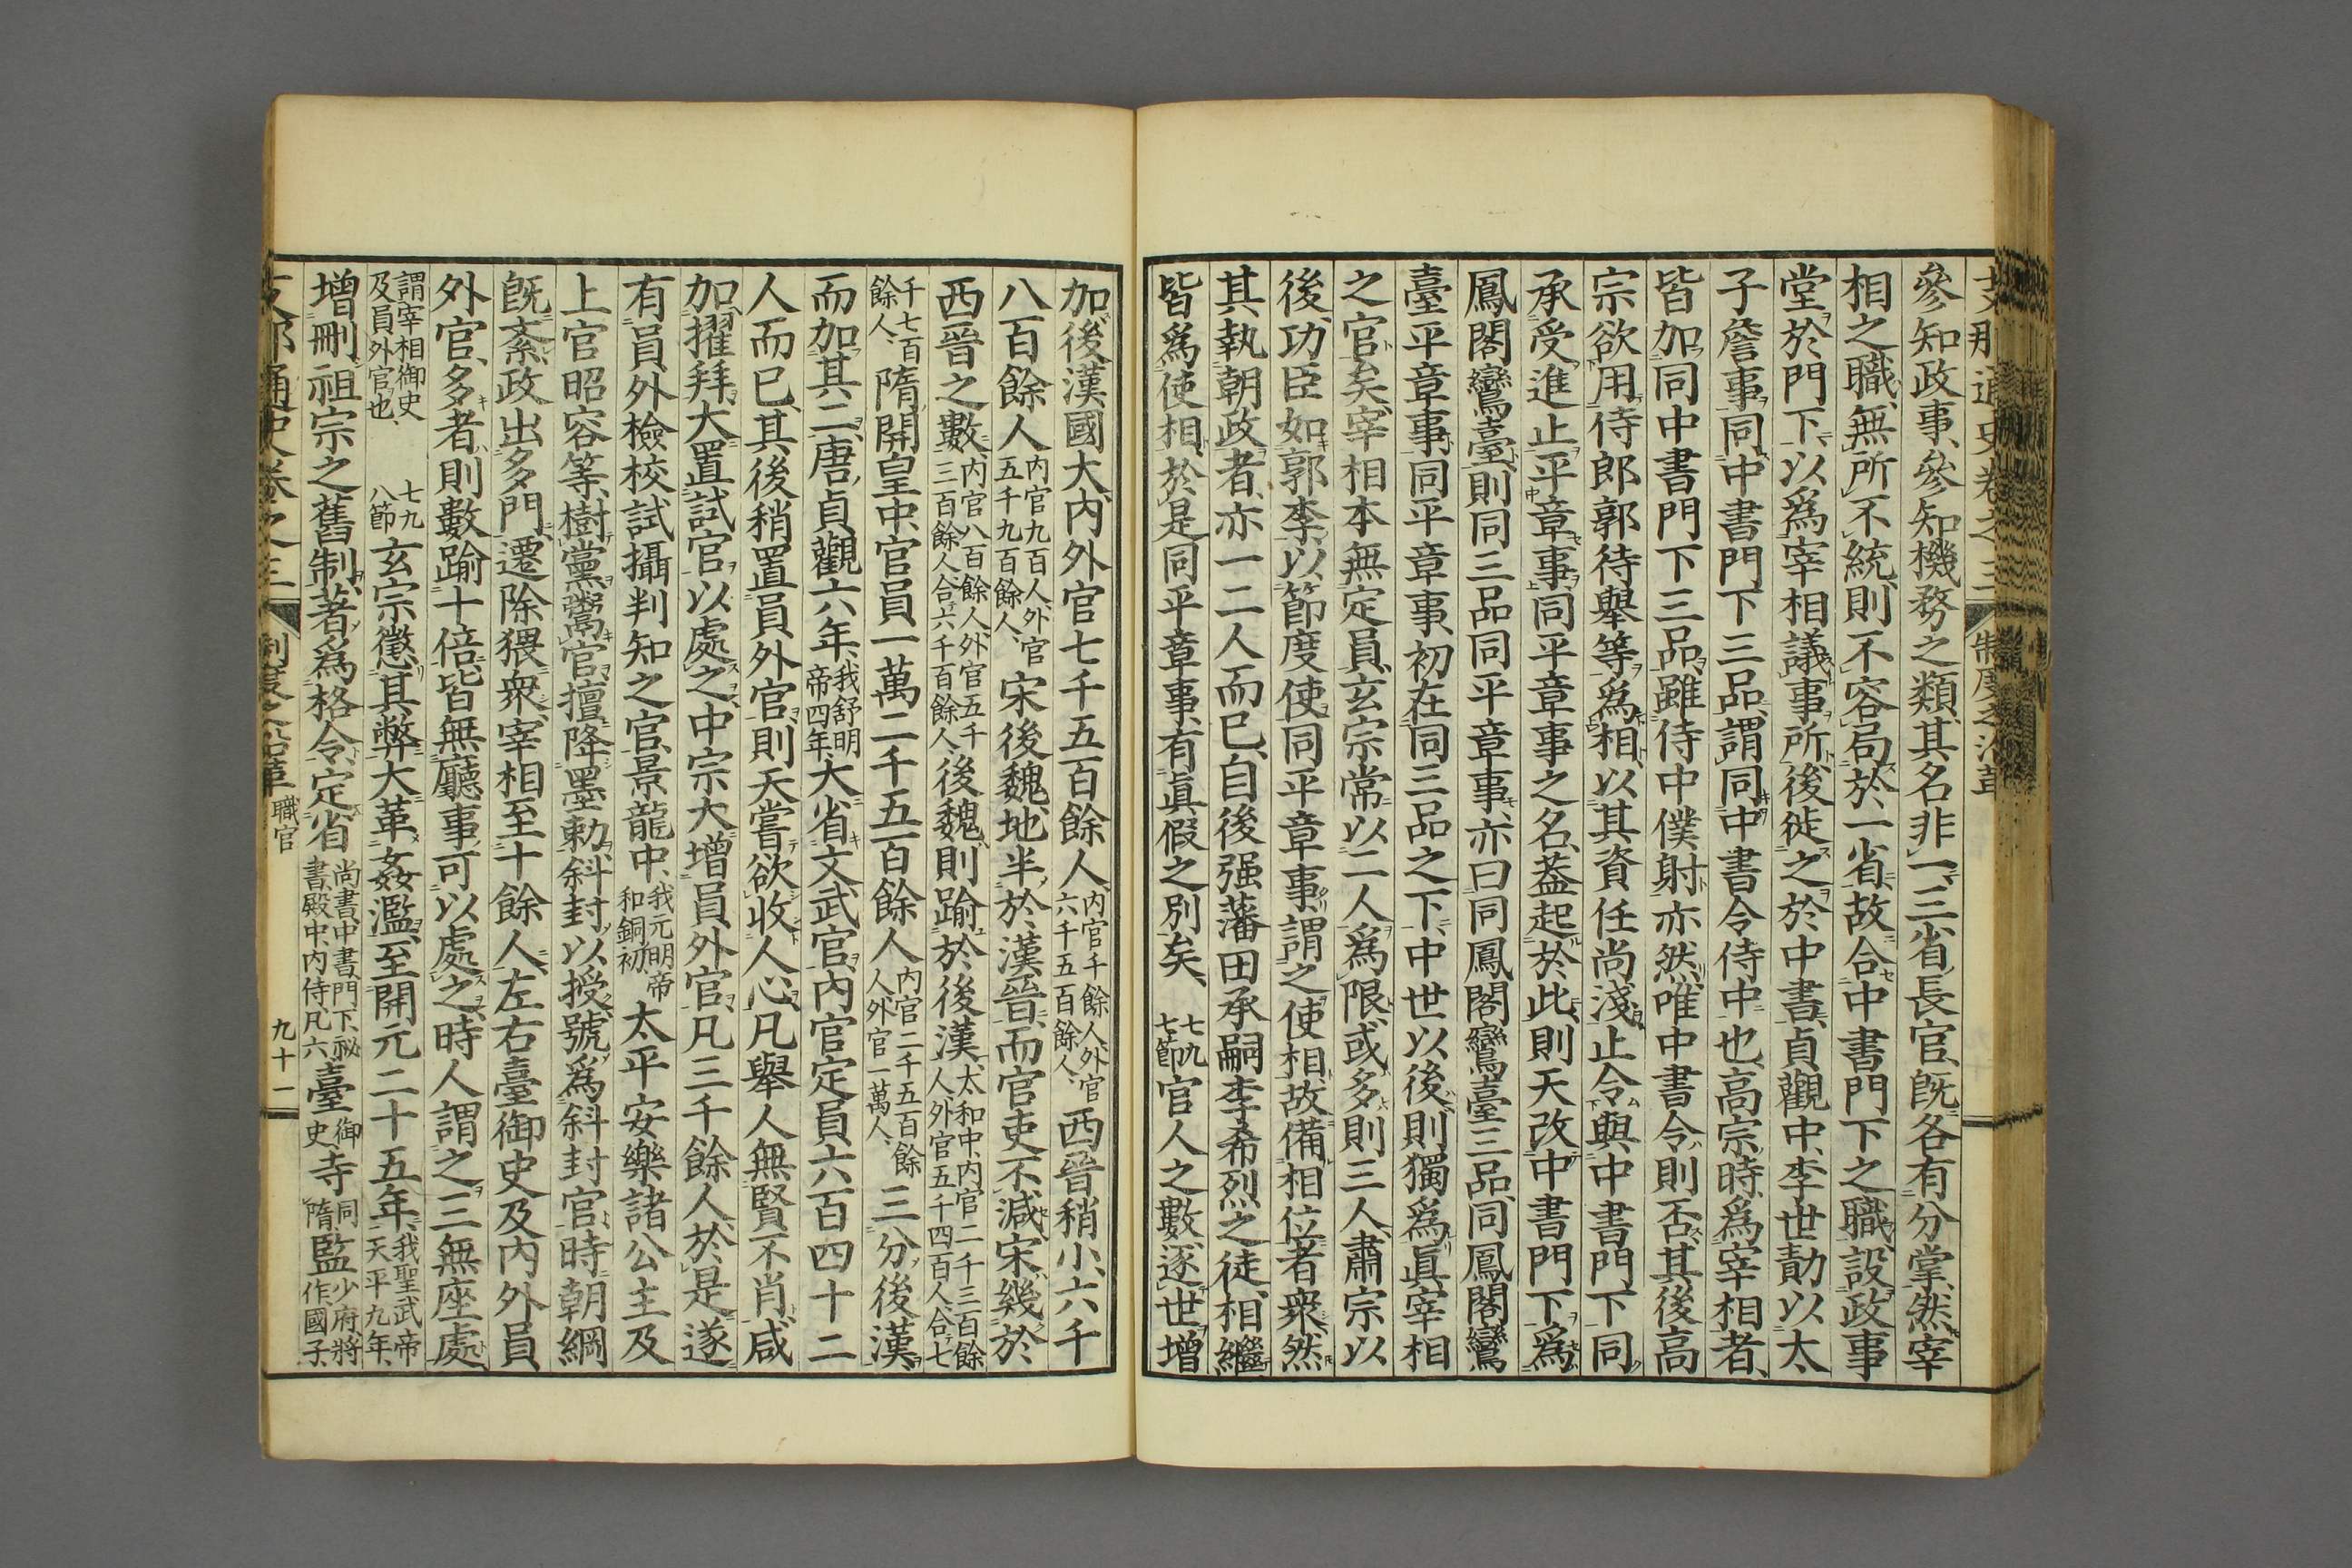 支那通史卷之三 制度之沿革
參知政事、參知機務之類、其名非一、三省長官、既各有分掌、然宰
相之職、無所不統、則不容局於一省、故合中書門下之職、設政事
堂於門下、以爲宰相議事所、後徙之於中書、貞觀中、李世勣以太
子詹事、同中書門下三品、謂同中書令侍中也、高宗時、爲宰相者、
皆加同中書門下三品、雖侍中僕射亦然、唯中書令則否、其後高
宗欲用侍郎郭待舉等爲相、以其資任尚淺、止令與中書門下同
承受進止平章事、同平章事之名、蓋起於此、則天改中書門下爲
鳳閣鸞臺、則同三品同平章事、亦曰同鳳閣鸞臺三品、同鳳閣鸞
臺平章事、同平章事、初在同三品之下、中世以後、則獨爲眞宰相
之官矣、宰相本無定員、玄宗常以二人爲限、或多則三人、肅宗以
後、功臣如郭李、以節度使同平章事、謂之使相、故備相位者衆、然
其執朝政者、亦一二人而已、自後强藩田承嗣李希烈之徒、相繼
皆爲使相、於是同平章事、有眞假之別矣、 七九七節 官人之數、逐世增
加、後漢國大、内外官七千五百餘人、内官千餘人、外官六千五百餘人、西晉稍小、六千
八百餘人、内官九百人、外官五千九百餘人、宋後魏、地半於漢晉、而官吏不減、宋幾於
西晉之數、内官八百餘人、外官五千三百餘人、合六千百餘人、後魏則踰於後漢、太和中、内官二千三百餘人、外官五千四百人、合七
千七百餘人、隋開皇中、官員一萬二千五百餘人、内官二千五百餘人、外官一萬人、三分後漢、
而加其二、唐貞觀六年、我舒明帝四年、大省文武官、内官定員六百四十二
人而已、其後稍置員外官、則天嘗欲收人心、凡舉人無賢不肖、咸
加擢拜、大置試官以處之、中宗大增員外官、凡三千餘人、於是遂
有員外檢校試攝判知之官、景龍中、我元明帝和銅初 太平安樂諸公主及
上官昭容等、樹黨鬻官、擅降墨勅、斜封以授、號爲斜封官、時朝綱
既紊、政出多門、遷除猥衆、宰相至十餘人、左右臺御史及内外員
外官、多者、則數踰十倍、皆無廳事可以處之、時人謂之三無座處、
謂宰相御史及員外官也、 七九八節 玄宗懲其弊、大革姦濫、至開元二十五年、我聖武帝天平九年、
增刪祖宗之舊制、著爲格令、定省 尚書、中書、門下、祕書、殿中、内侍、凡六 臺 御史 寺 同隋 監 少府、將作、國子、
支那通史卷之三 制度之沿革 職官 九十一